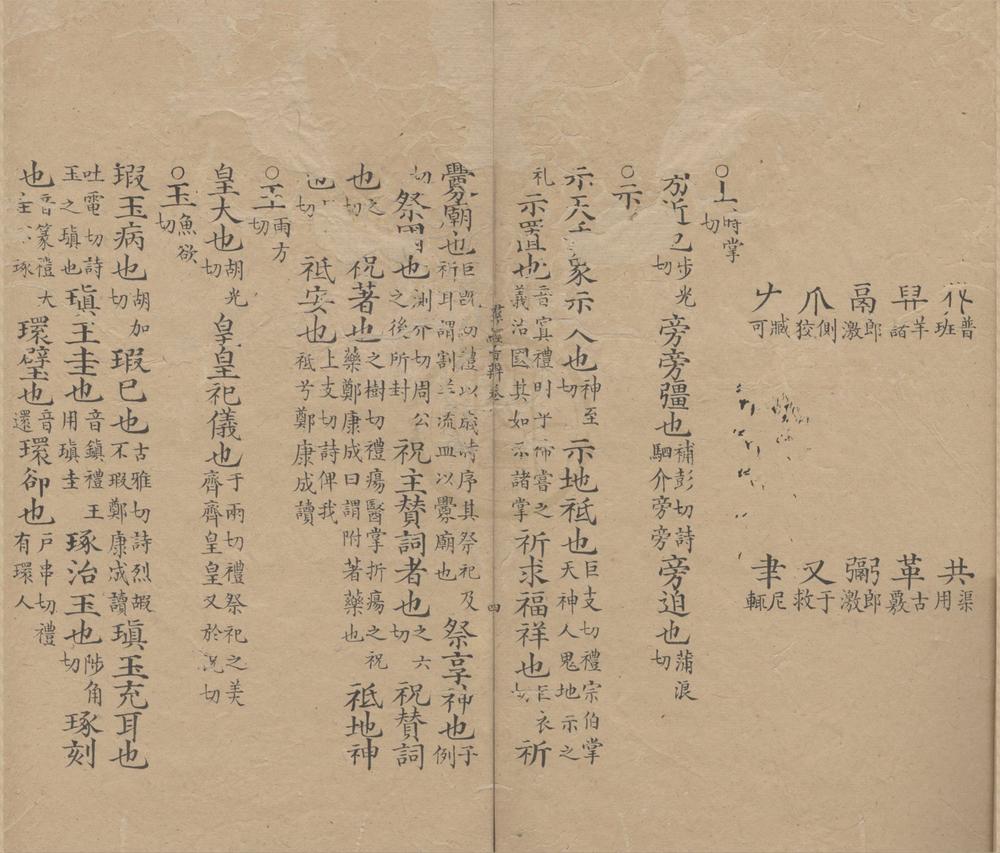 𠬜普班 共渠用
舁羊諸 革古覈
鬲郎激 䰜郎激
爪側狡 又于救
𠂇臧可 聿尼輒
○上時掌切
旁近也步光切 旁旁彊也補彭切詩駟介旁旁 旁迫也蒲浪切
○示
示天 象示人也神至切 示地祇也巨支切禮宗伯掌天神人鬼地示之
礼 示置也音寘禮明乎禘嘗之義治國其如示諸掌 祈求福祥也巨衣切 祈
羣經音辨卷一 四
釁廟也巨既切禮以歲時序其祭祀及祈珥謂割羊流血以釁廟也 祭享神也子例
切 祭國也側介切周公之後所封 祝主贊詞者也之六切 祝贊詞
也之 切 祝著也之樹切禮瘍醫掌折瘍之祝藥鄭康成曰謂附著藥也 祇地神
也 切 祇安也上支切詩俾我祇兮鄭康成讀
○王雨方切
皇大也胡光切 皇皇祀儀也于兩切禮祭祀之美齊齊皇皇又於況切
○玉魚欲切
瑕玉病也胡加切 瑕已也古雅切詩烈嘏不瑕鄭康成讀 瑱玉充耳也
吐電切詩玉之瑱也 瑱王圭也音鎮禮王用瑱圭 琢治玉也陟角切 琢刻
也音篆禮大圭 琢 環璧也音還 環卻也戶串切禮有環人